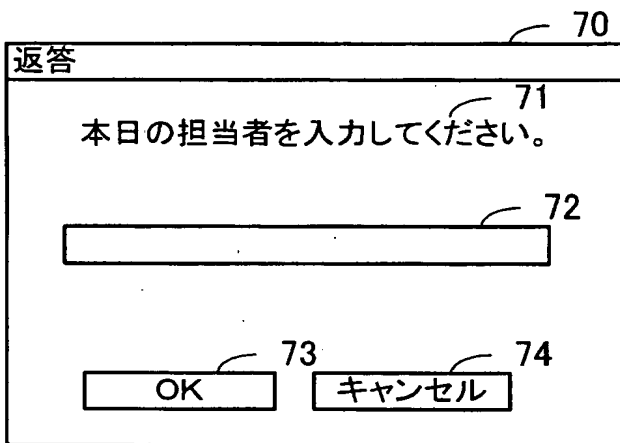 70
返答
71
本日の担当者を入力してください。
72
73
74
OK
キャンセル